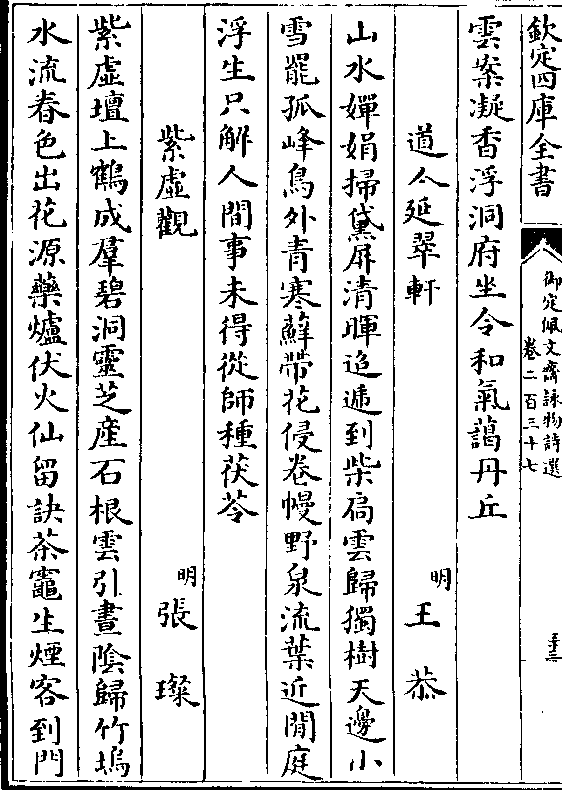 欽定四庫全書
御定佩文齋詠物詩選
卷二百三十七
雲案凝香浮洞府坐令和氣藹丹丘
道人延翠軒
明
王恭
山水嬋娟掃黛屏清暉迢遞到柴扃雲歸獨樹天邊小
雪罷孤峰鳥外青寒蘚帶花侵卷幔野泉流葉近閒庭
浮生只解人間事未得從師種茯苓
紫虛觀
明
張璨
紫虛壇上鶴成羣碧洞靈芝産石根雲引晝陰歸竹塢
水流春色出花源藥爐伏火仙留訣茶竈生煙客到門